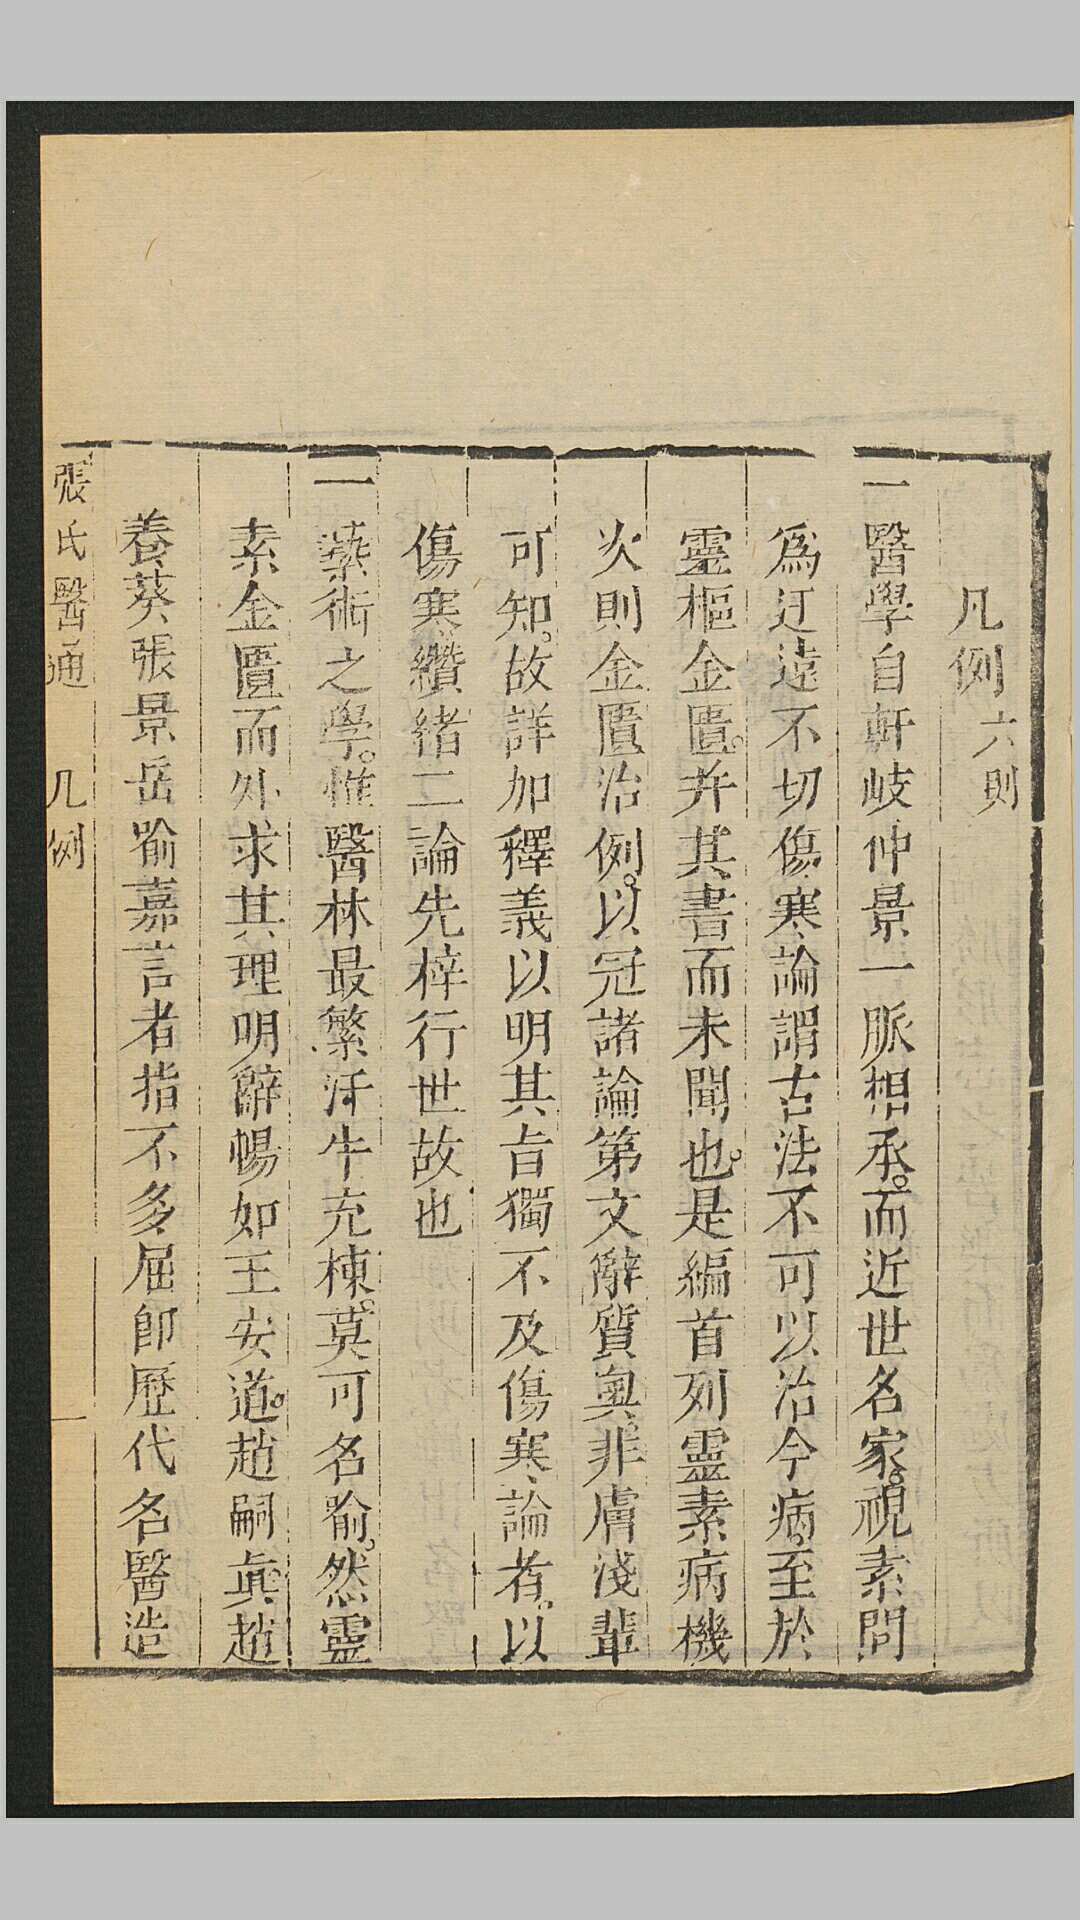 凡例六則
一醫學自軒岐仲景一脈相承。而近世名家。視素問
爲迂遠不切傷寒論謂古法不可以治今病。至於
靈樞金匱。并其書而未聞也。是編首列靈素病機
次則金匱治例。以冠諸論第文辭質奧。非膚淺輩
可知。故詳加釋義以明其旨獨不及傷寒論者。以
傷寒纘緒二論先梓行世故也
一藝術之學。惟醫林最繁汗牛充棟。莫可名喻。然靈
素金匱而外求其理明辭暢如王安道。趙嗣眞趙
養葵張景岳喻嘉言者指不多屈卽歷代名醫造
張氏醫通 凡例 一